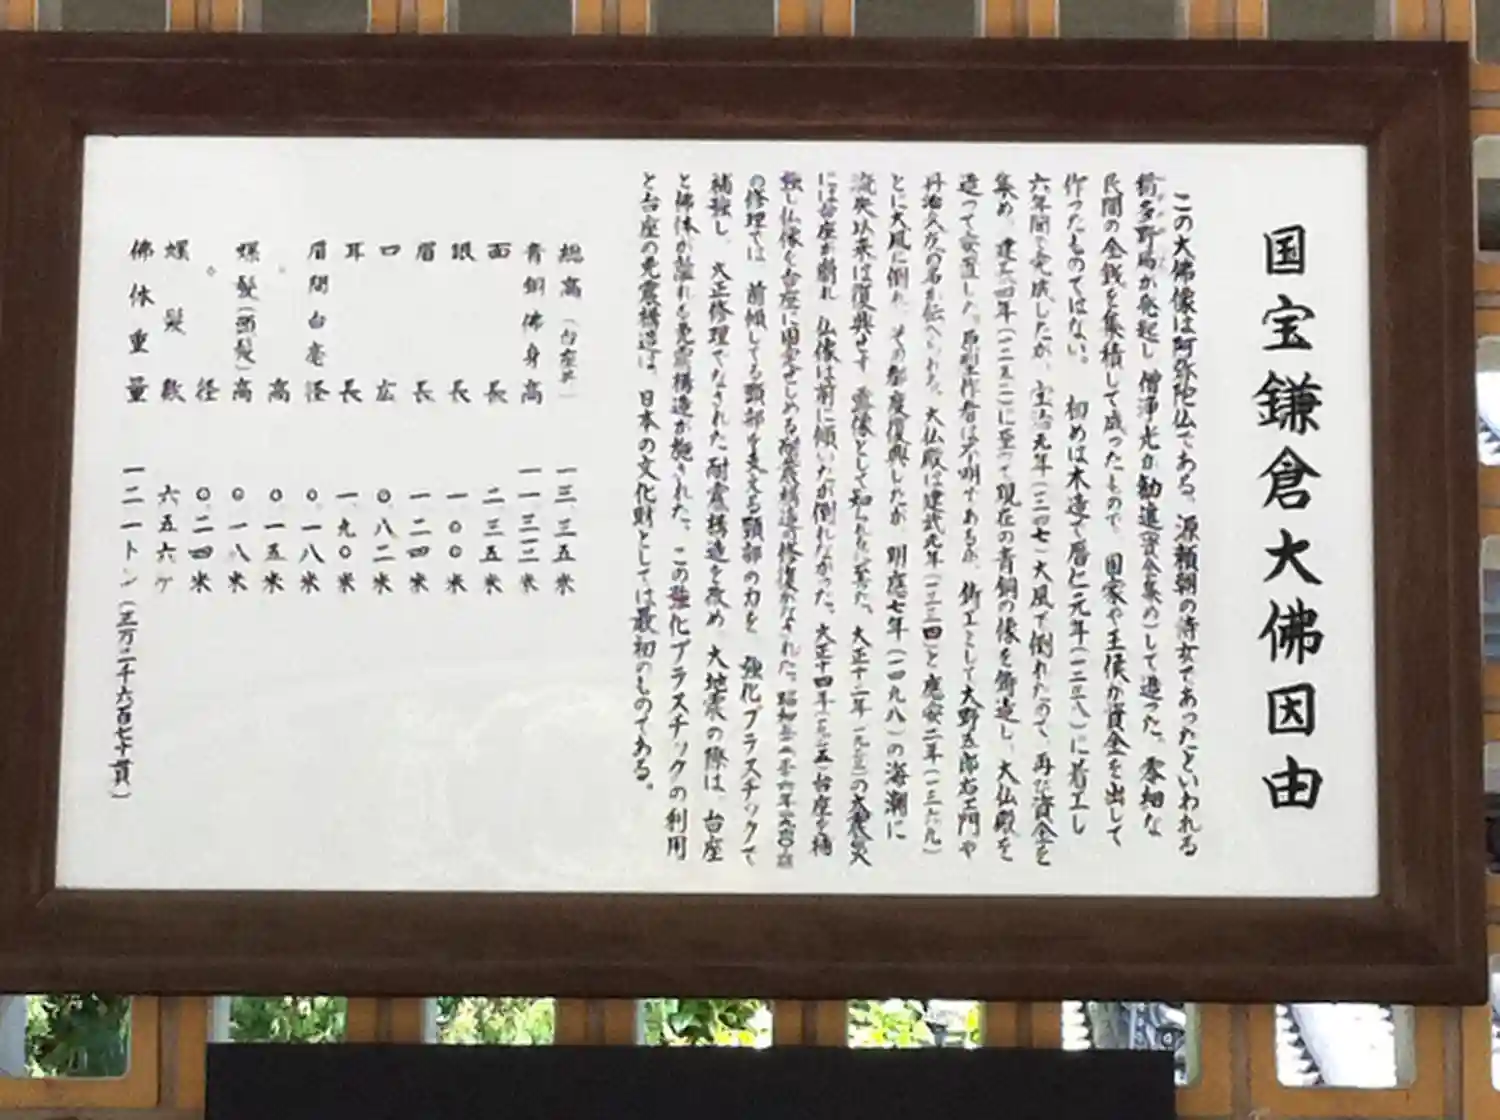 国宝鎌倉大佛因由
この大佛像は阿弥陀仏である。源頼朝の侍女であったといわれる
稲多野局が発起し僧浄光が勧進(資金集め)して造った。零細な
民間の金銭を集積して成ったもので、国家や王侯が資金を出して
作ったものではない。初めは木造で暦仁元年(一二三八)に着工し
六年間で完成したが、宝治元年(一二四七)大風で倒れたので、再び資金を
集め、建長四年(一二五二)に至って現在の青銅の像を鋳造し、大仏殿を
造って安置した。原型作者は不明であるが、鋳工として大野五郎右エ門や
丹治久友の名が伝へられる。大仏殿は建武元年(一三三四)と應安二年(一三六九)
とに大風に倒れ、その都度復興したが、明應七年(一四九八)の海潮に
流失以来は復興せず、露像として知られるに至た。大正十二年の大震災
には台座が崩れ、仏像は前に傾いたが倒れなかった。大正十四年台座を補
強し仏像を台座に固定せしめる耐震構造の修復がなされた。昭和
の修理では、前傾してる頭部を支える頸部の力を、強化プラスチックで
補強し、大正修理でなされた耐震構造を改め、大地震の際は、台座
と佛体が離れる免震構造が施された。この強化プラスチックの利用
と台座の免震構造は、日本の文化財としては最初のものである。
総高(台座共) 一三.三五米
青銅佛身高 一一.三一二米
面長 二.三五米
眼長 一.〇〇米
眉長 一.二四米
口広 〇.八二米
耳長 一.九〇米
眉間白毫径 〇.一八米
〃高 〇.一五米
螺髪(頭髪)高 〇.一八米
〃径 〇.二四米
螺髪数 六五六ケ
佛体重量 一二一トン(三万二千六百七十貫)